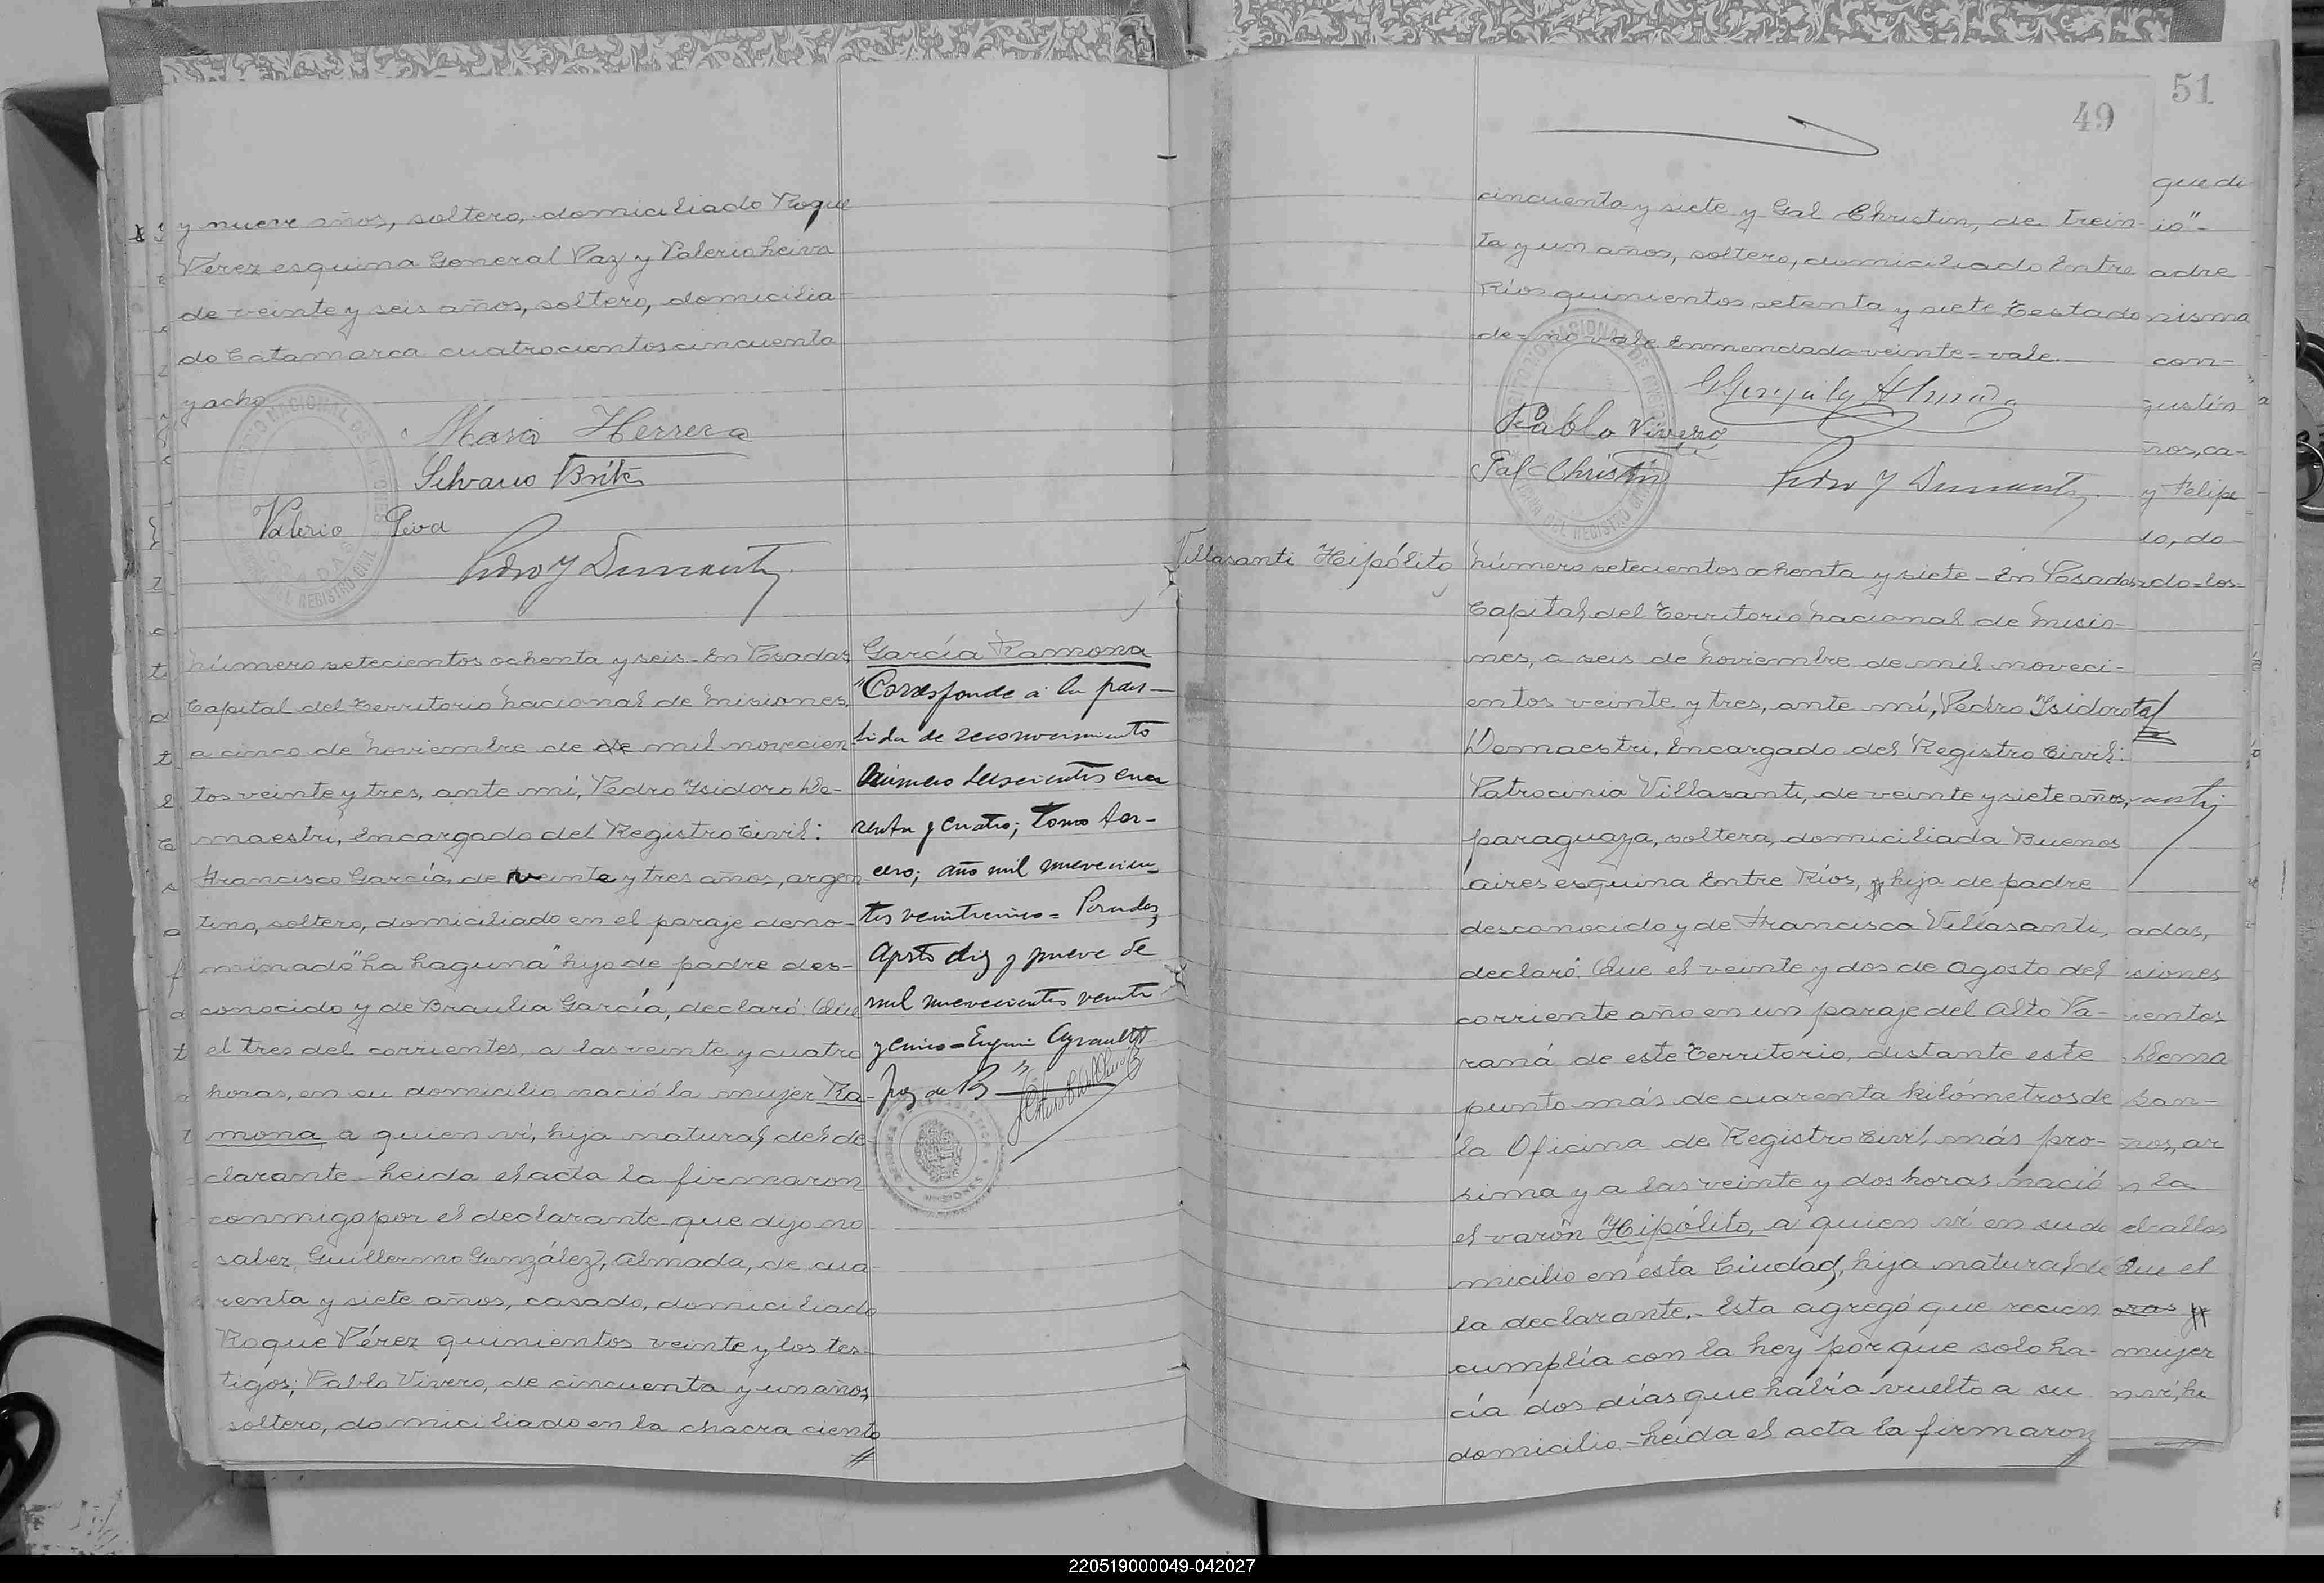 y nueve años, soltero, domiciliado Roque
Pérez esquina General Paz y Valerio Leiva
de veinte y seis años, soltero, domicilia-
do Catamarca cuatrocientos cincuenta
y ocho
Maria Herrera
Silvano Brites
Valerio Leiva
Pedro I Demaestri
Número setecientos ochenta y seis - En Posadas
Capital del Territorio Nacional de Misiones,
a cinco de Noviembre de de mil novecien-
tos veinte y tres, ante mí, Pedro Isidoro De-
maestri, Encargado del Registro Civil:
Francisco García, de veinte y tres años, argen
tino, soltero, domiciliado en el paraje deno-
minado "La Laguna" hijo de padre des-
conocido y de Braulia García, declaró: Que
el tres del corrientes, a las veinte y cuatro
horas, en su domicilio nació la mujer Ra-
mona, a quien ví, hija natural del de
clarante - Leida el acta la firmaron
conmigo por el declarante que dijo no
saber, Guillermo González Almada, de cua-
renta y siete años, casado, domiciliado
Roque Pérez quinientos veinte y los tes-
tigos; Pablo Vivero, de cincuenta y un años,
soltero, domiciliado en la chacra ciento
García Ramona
"Corresponde a la par-
tida de reconocimiento
número seiscientos cua
renta y cuatro; tomo ter-
cero; año mil novecien-
tos veinticinco = Posadas,
Agosto diez y nueve de
mil novecientos veinte
y cinco = Eugenio Ayrault
Juez de P."
51
49
cincuenta y siete y Gal Christin, de trein-
ta y un años, soltero, domiciliado Entre
Ríos quinientos setenta y siete Testado
de = no vale. Enmendado veinte = vale.
G González Almada
Pablo Vivero
Gal Christin
Pedro I Demaestri
Villasanti Hipólito
Número setecientos ochenta y siete - En Posadas
Capital del Territorio Nacional de Misio-
nes, a seis de Noviembre de mil noveci-
entos veinte y tres, ante mí, Pedro Isidoro
Demaestri, Encargado del Registro Civil:
Patrocinia Villasanti, de veinte y siete años,
paraguaya, soltera, domiciliada Buenos
Aires esquina Entre Ríos, hija de padre
desconocido y de Francisca Villasanti,
declaró: Que el veinte y dos de Agosto del
corriente año en un paraje del Alto Pa-
raná de este Territorio, distante este
punto más de cuarenta kilómetros de
la Oficina de Registro Civil más pró-
sima y a las veinte y dos horas nació
el varón "Hipólito, a quien ví en su do
micilio en ésta Ciudad, hijo natural de
la declarante. - Esta agregó que recien
cumplía con la Ley porque solo ha-
cía dos días que había vuelto a su
domicilio - Leida el acta la firmaron
que di
io" -
adre
misma
con-
gustín
ños, ca-
y Felipe
io, do-
do = los =
tal
adas,
siones
ientos
Dema
San-
ños, ar
n la
Que el
oras
mujer
n ví, hi
220519000049-042027